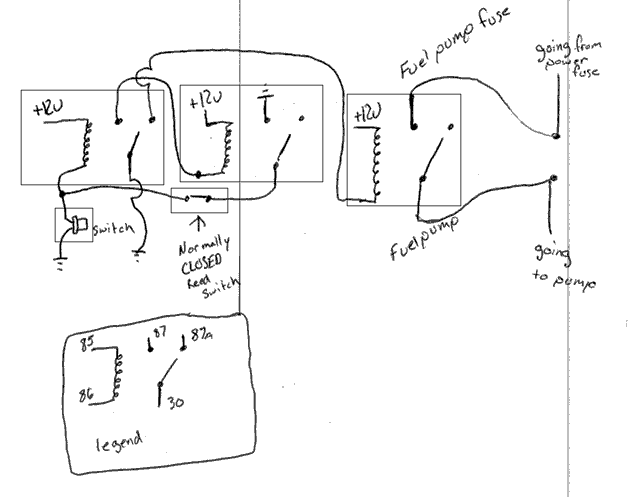 Fuel pump fuse
going from
power
fuse
+12V
+12V
+12V
switch
Normally
CLOSED
Reed
switch
Fuel pump
going
to pump
85
87
87a
86
30
legend